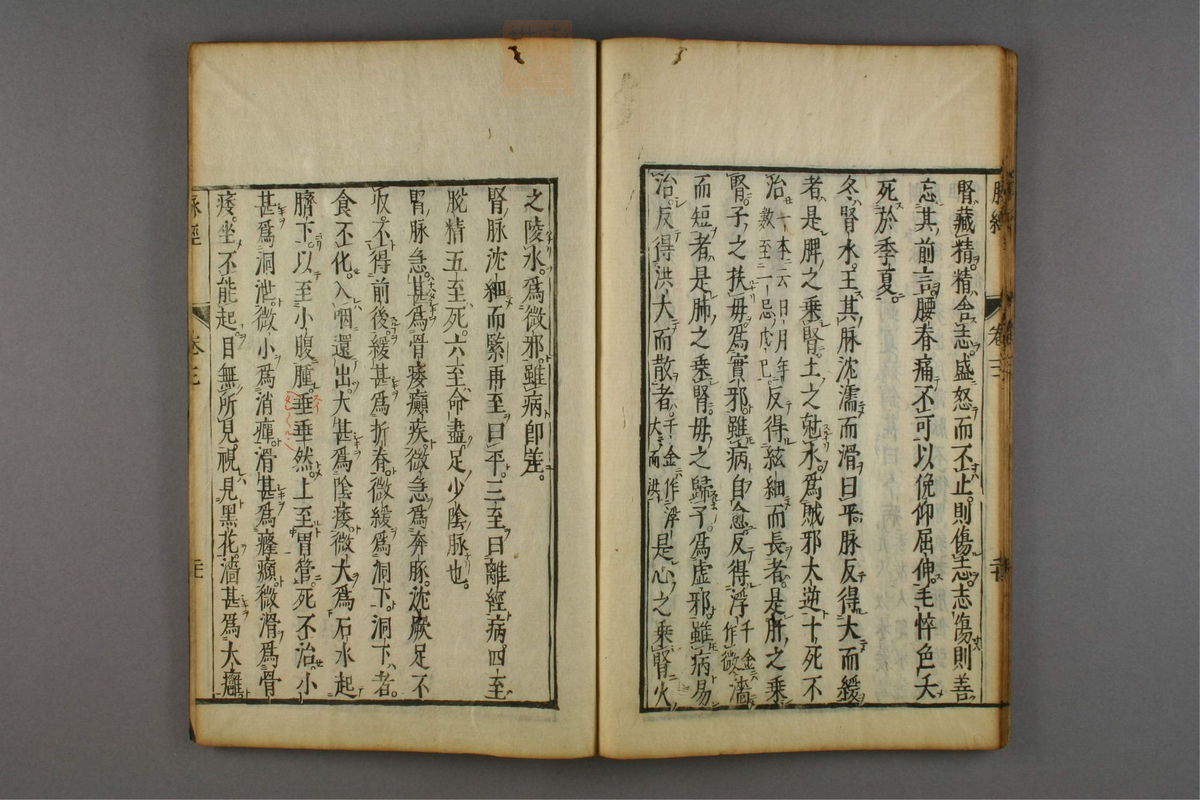 腎藏精精舍志盛怒而不止則傷志志傷則善
忘其前言腰脊痛不可以俛仰屈伸毛悴色夭
死於季夏
冬腎水王其脉沈濡而滑曰平脉反得大而緩
者是脾之乗腎土之尅水爲賊邪大逆十死不
治一本云日月年數至二忌戊巳反得絃細而長者是肝之乗
腎子之扶母爲實邪雖病自愈反得浮千金作微濇
而短者是肺之乗腎母之歸子爲虚邪雖病易
治反得洪大而散者千金作浮大而洪是心之乗腎火
之陵水爲微邪雖病即差
腎脉沈細而緊再至曰平三至曰離經病四至
脫精五至死六至命盡足少陰脉也
腎脉急甚爲骨痿癲疾微急爲奔豚沈厥足不
収不得前後緩甚爲折脊微緩爲洞下洞下者
食不化入咽還出大甚爲陰痿微大爲石水起
臍下以至小腹腫垂垂然上至胃管死不治小
甚爲洞泄微小爲消癉滑甚爲癃癩微滑爲骨
痿坐不能起目無所見視見黒花濇甚爲大癰
脉經
卷三